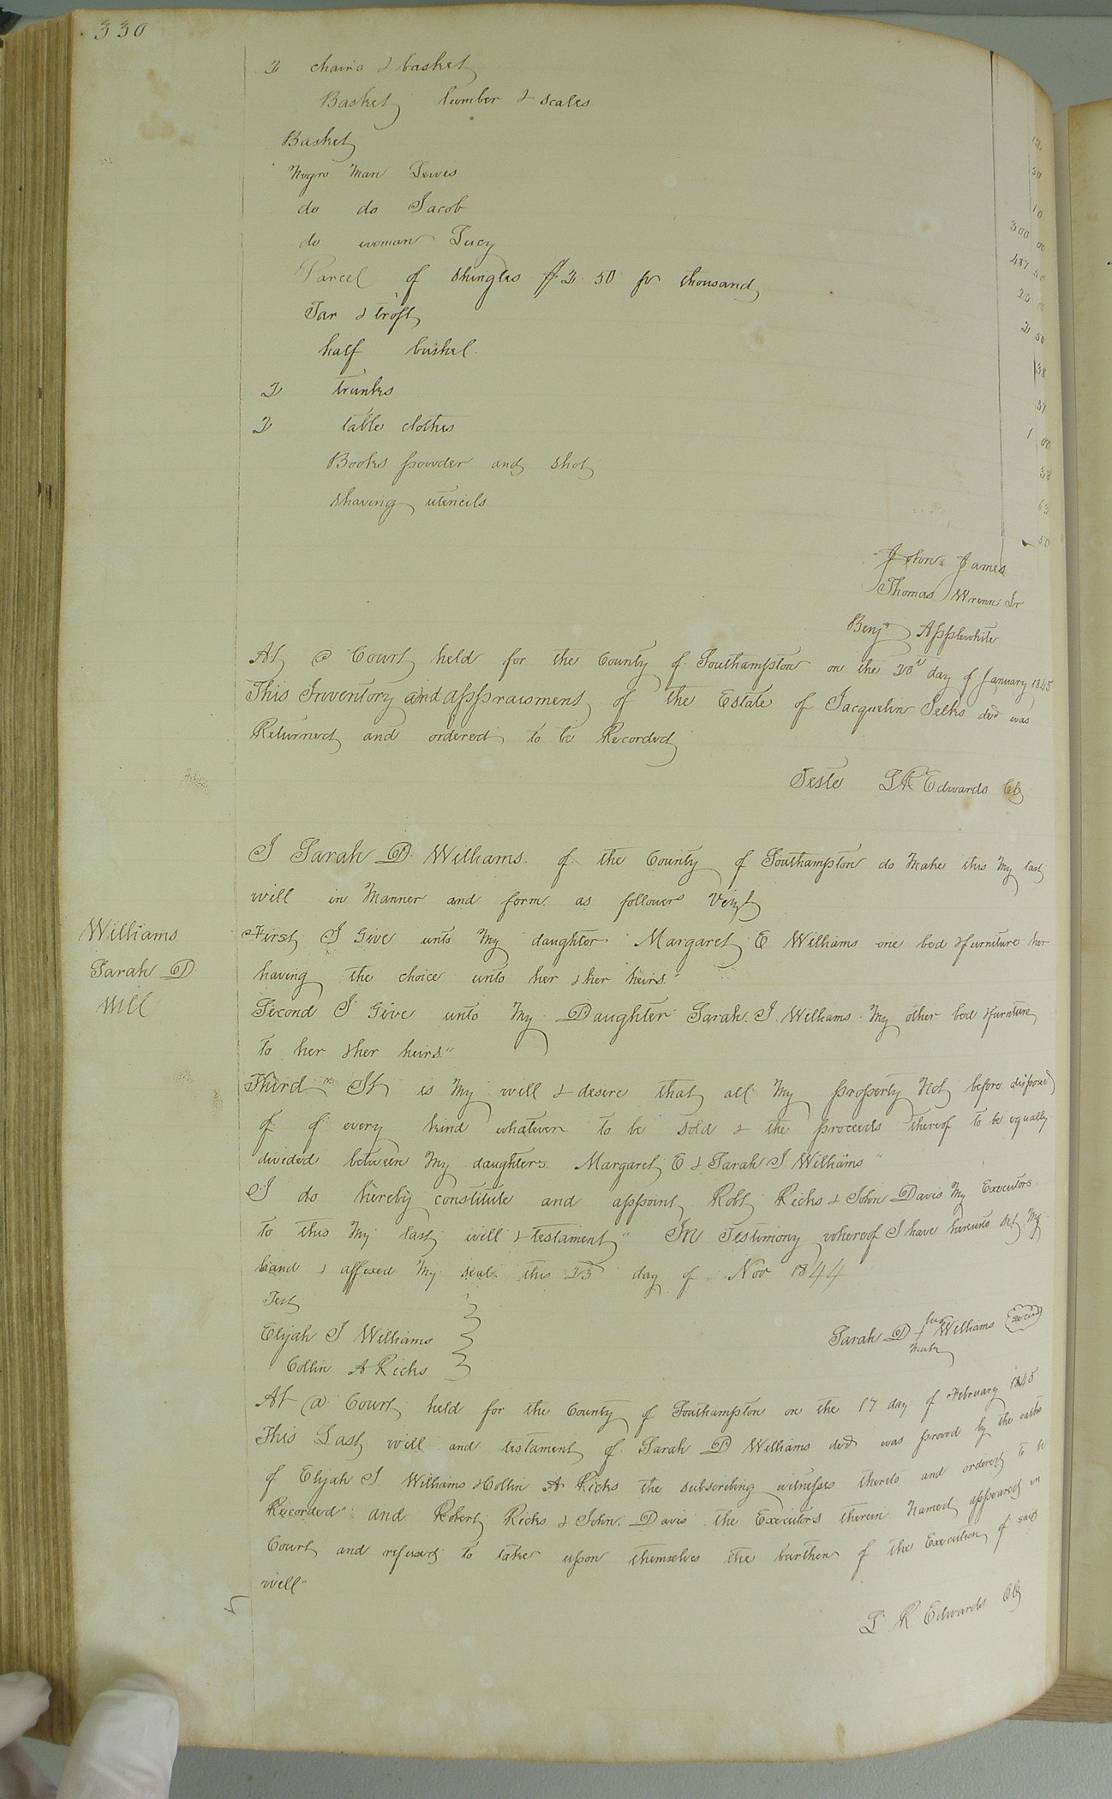 330
2 chairs & basket
Basket lumber & scales
Basket
Negro Man Lewis
do do Jacob
do woman Lucy
Parcel of shingles $2.50 pr thousand
Jar & troft
half bushel
2 trunks
2 table clothes
Books powder and shot
shaving utencils
50
10
300 00
20
2 50
38
37
1 00
38
63
50
John James
Thomas Wrenn Sr
Benjn Applewhite
At a Court held for the County of Southampton on the 20th day of January 1845
This Inventory and appraisment of the Estate of Jacquelin Selks decd was
Returned and ordered to be Recorded
Teste L R Edwards Clk
I Sarah D. Williams of the County of Southampton do Make this My last
will in Manner and form as follows Vizt
Williams
Sarah D.
Will
First I Give unto My daughter Margaret E Williams one bed & furniture her
having the choice unto her & her heirs."
Second I Give unto My Daughter Sarah. J. Williams. My other bed & furniture
to her & her heirs."
Third " It is My will & desire that all My property Not before disposed
of of every kind whatever to be sold & the proceeds thereof to be equally
divided between My daughters Margaret E & Sarah J Williams "
I do hereby constitute and appoint Robt Ricks & John Davis My Executors
to this My last will & testament " In Testimony whereof I have hereunto set My
hand & affixed My seal this 23 day of Nov 1844
Test
Elijah J Williams
Collin A Ricks
Sarah D + Williams
her
mark
At a Court held for the County of Southampton on the 17 day of February 1845
This Last will and testament of Sarah D Williams decd was proved by the oaths
of Elijah J. Williams & Collin A Ricks the subscribing witnesses thereto and ordered to be
Recorded" and Robert Ricks & John. Davis the Executors therein Named appeared in
Court and refused to take upon themselves the burthen of the Execution of said
will"
L R Edwards Clk